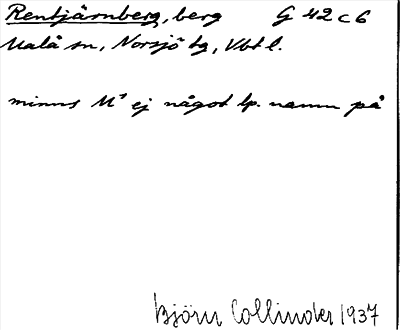 Rentjärnberg, berg G 42 c 6
Malå sn, Norsjö tg, Vbt l.
minns M¹ ej något lp. namn på
Björn Collinder 1937